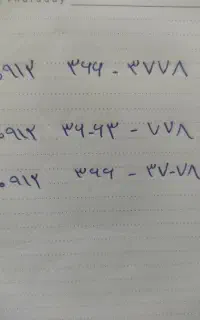 ۰۹۱۲ ۳۶۶ - ۳۷۷۸
۰۹۱۲ ۳۶-۶۳ - ۷۷۸
۰۹۱۲ ۳۶۶ - ۳۷-۷۸